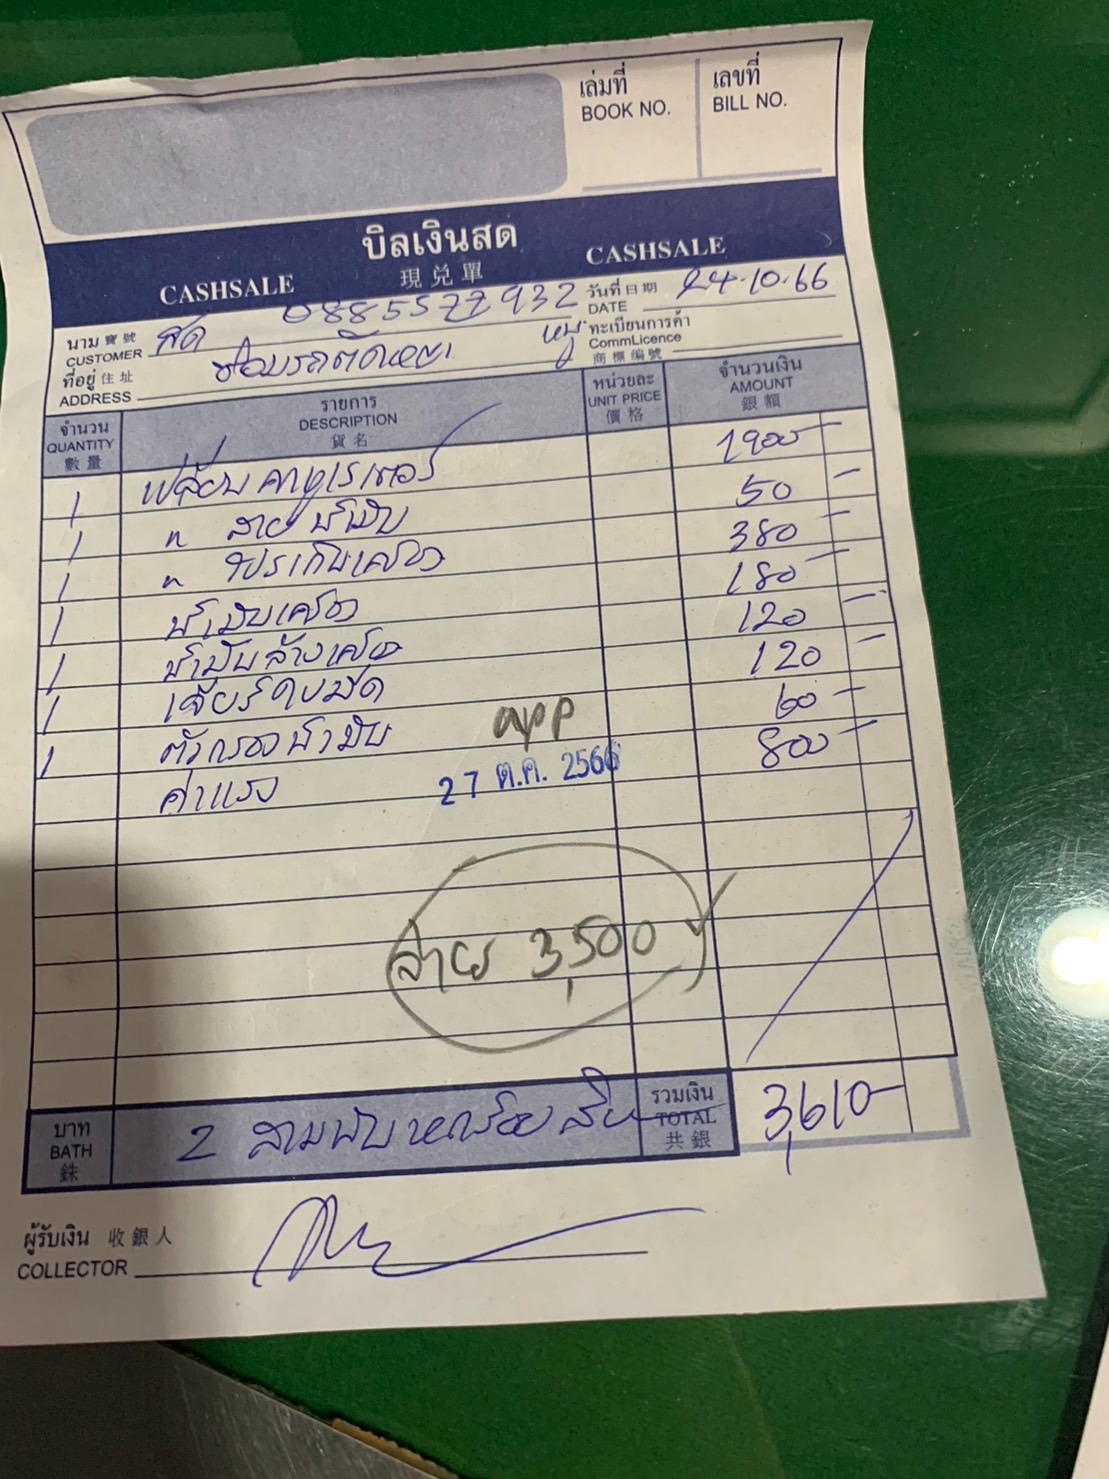 เล่มที่ เลขที่
BOOK NO. BILL NO.
บิลเงินสด
CASHSALE 現兑單 CASHSALE
นาม 寶號 สด 0885577932 วันที่ 日期 24.10.66
CUSTOMER DATE
ที่อยู่ 住址 ซ่อมรถตัดหญ้า ทะเบียนการค้า
ADDRESS CommLicence
商標編號
จำนวน รายการ หน่วยละ จำนวนเงิน
QUANTITY DESCRIPTION UNIT PRICE AMOUNT
數量 貨名 價格 銀額
1 เปลี่ยนคาบูเรเตอร์ 1900-
1 " สายน้ำมัน 50 -
1 " ปะเก็นเครื่อง 380 -
1 น้ำมันเครื่อง 180 -
1 น้ำมันล้างเครื่อง 120 -
1 เจียร์ใบมีด 120 -
1 ตัวกรองน้ำมัน 60 -
ค่าแรง 800 -
app
27 ต.ค. 2566
จ่าย 3,500
บาท รวมเงิน
BATH 2 สามพันหกร้อยสิบ TOTAL 3,610-
銖 共銀
ผู้รับเงิน 收銀人
COLLECTOR